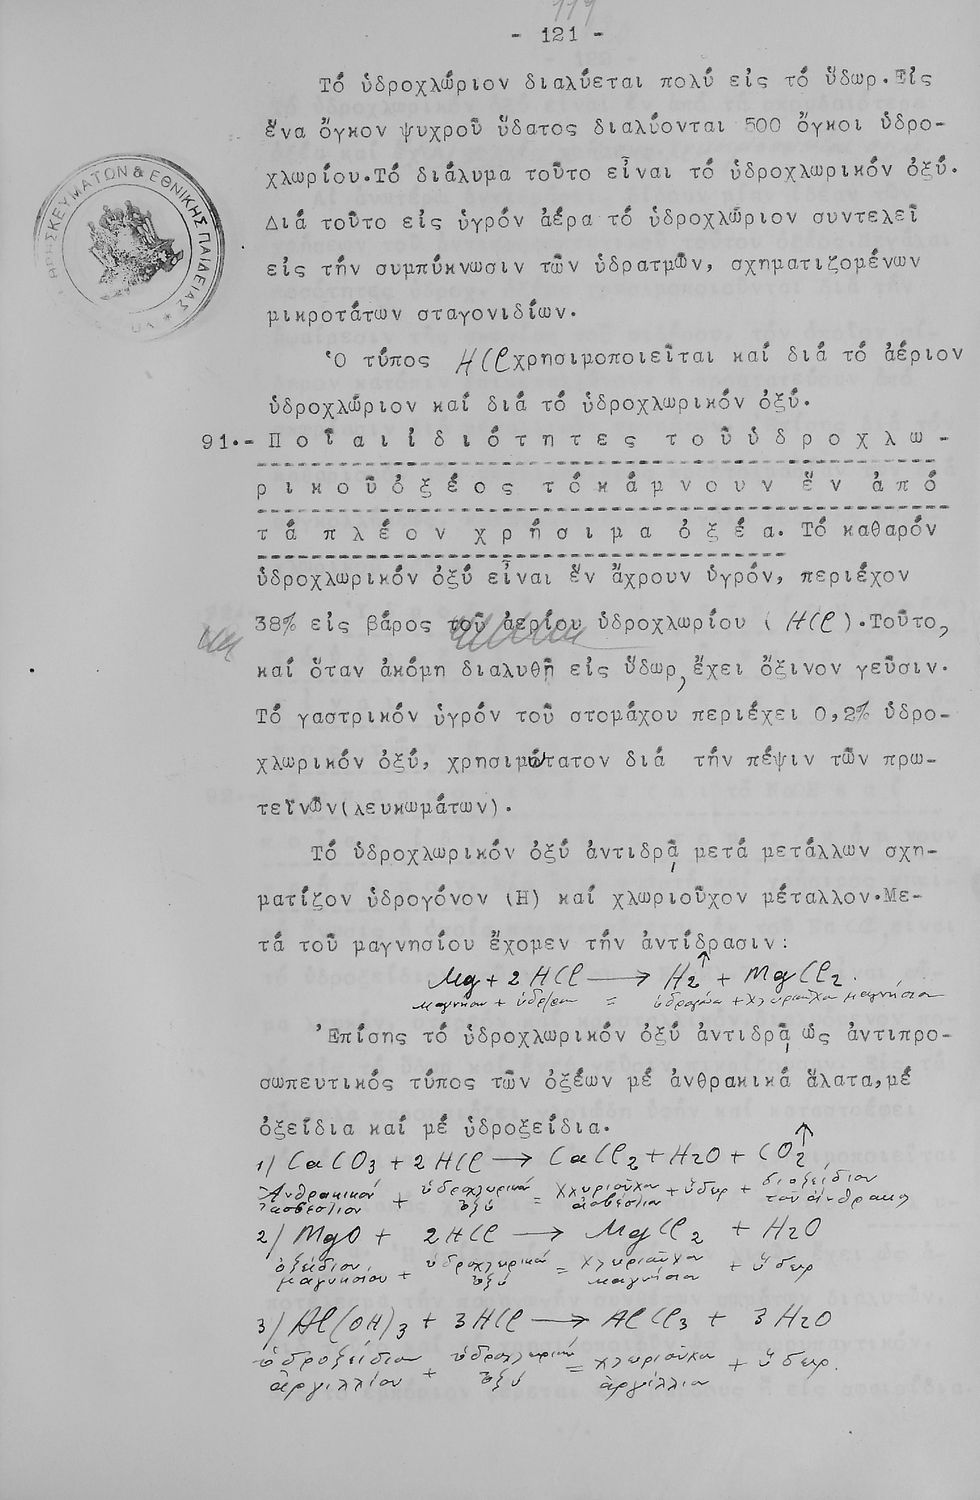 119
- 121 -
Τό ὑδροχλώριον διαλύεται πολύ εἰς τό ὕδωρ. Εἰς
ἕνα ὄγκον ψυχροῦ ὕδατος διαλύονται 500 ὄγκοι ὑδρο-
χλωρίου. Τό διάλυμα τοῦτο εἶναι τό ὑδροχλωρικόν ὀξύ.
Διά τοῦτο εἰς ὑγρόν ἀέρα τό ὑδροχλώριον συντελεῖ
εἰς τήν συμπύκνωσιν τῶν ὑδρατμῶν, σχηματιζομένων
μικροτάτων σταγονιδίων.
ΣΚΕΥΜΑΤΩΝ & ΕΘΝΙΚΗΣ ΠΑΙΔΕΙΑΣ
Ὁ τύπος HCl χρησιμοποιεῖται καί διά τό ἀέριον
ὑδροχλώριον καί διά τό ὑδροχλωρικόν ὀξύ.
91.- Ποῖαι ἰδιότητες τοῦ ὑδροχλω-
ρικοῦ ὀξέος τό κάμνουν ἕν ἀπό
τά πλέον χρήσιμα ὀξέα. Τό καθαρόν
ὑδροχλωρικόν ὀξύ εἶναι ἕν ἄχρουν ὑγρόν, περιέχον
38% εἰς βάρος τοῦ ἀερίου ὑδροχλωρίου (HCl). Τοῦτο,
καί ὅταν ἀκόμη διαλυθῇ εἰς ὕδωρ, ἔχει ὄξινον γεῦσιν.
Τό γαστρικόν ὑγρόν τοῦ στομάχου περιέχει 0,2% ὑδρο-
χλωρικόν ὀξύ, χρησιμώτατον διά τήν πέψιν τῶν πρω-
τεϊνῶν (λευκωμάτων).
Τό ὑδροχλωρικόν ὀξύ ἀντιδρᾷ μετά μετάλλων σχη-
ματίζον ὑδρογόνον (Η) καί χλωριοῦχον μέταλλον. Με-
τά τοῦ μαγνησίου ἔχομεν τήν ἀντίδρασιν:
Mg + 2 HCl → H2↑ + MgCl2.
μαγνήσιον + = ὑδρογόνον + χλωριοῦχον μαγνήσιον
Ἐπίσης τό ὑδροχλωρικόν ὀξύ ἀντιδρᾷ ὡς ἀντιπρο-
σωπευτικός τύπος τῶν ὀξέων μέ ἀνθρακικά ἅλατα, μέ
ὀξείδια καί μέ ὑδροξείδια.
1) CaCO3 + 2HCl → CaCl2 + H2O + CO2↑,
Ἀνθρακικόν + ὑδροχλωρικόν = Χλωριοῦχον + ὕδωρ + διοξείδιον
ἀσβέστιον ὀξύ ἀσβέστιον τοῦ ἄνθρακος
2) MgO + 2HCl → MgCl2 + H2O
ὀξείδιον + ὑδροχλωρικόν = χλωριοῦχον + ὕδωρ
μαγνησίου ὀξύ μαγνήσιον
3) Al(OH)3 + 3HCl → AlCl3 + 3H2O
ὑδροξείδιον + ὑδροχλωρικόν = χλωριοῦχον + ὕδωρ.
ἀργιλλίου ὀξύ ἀργίλλιον